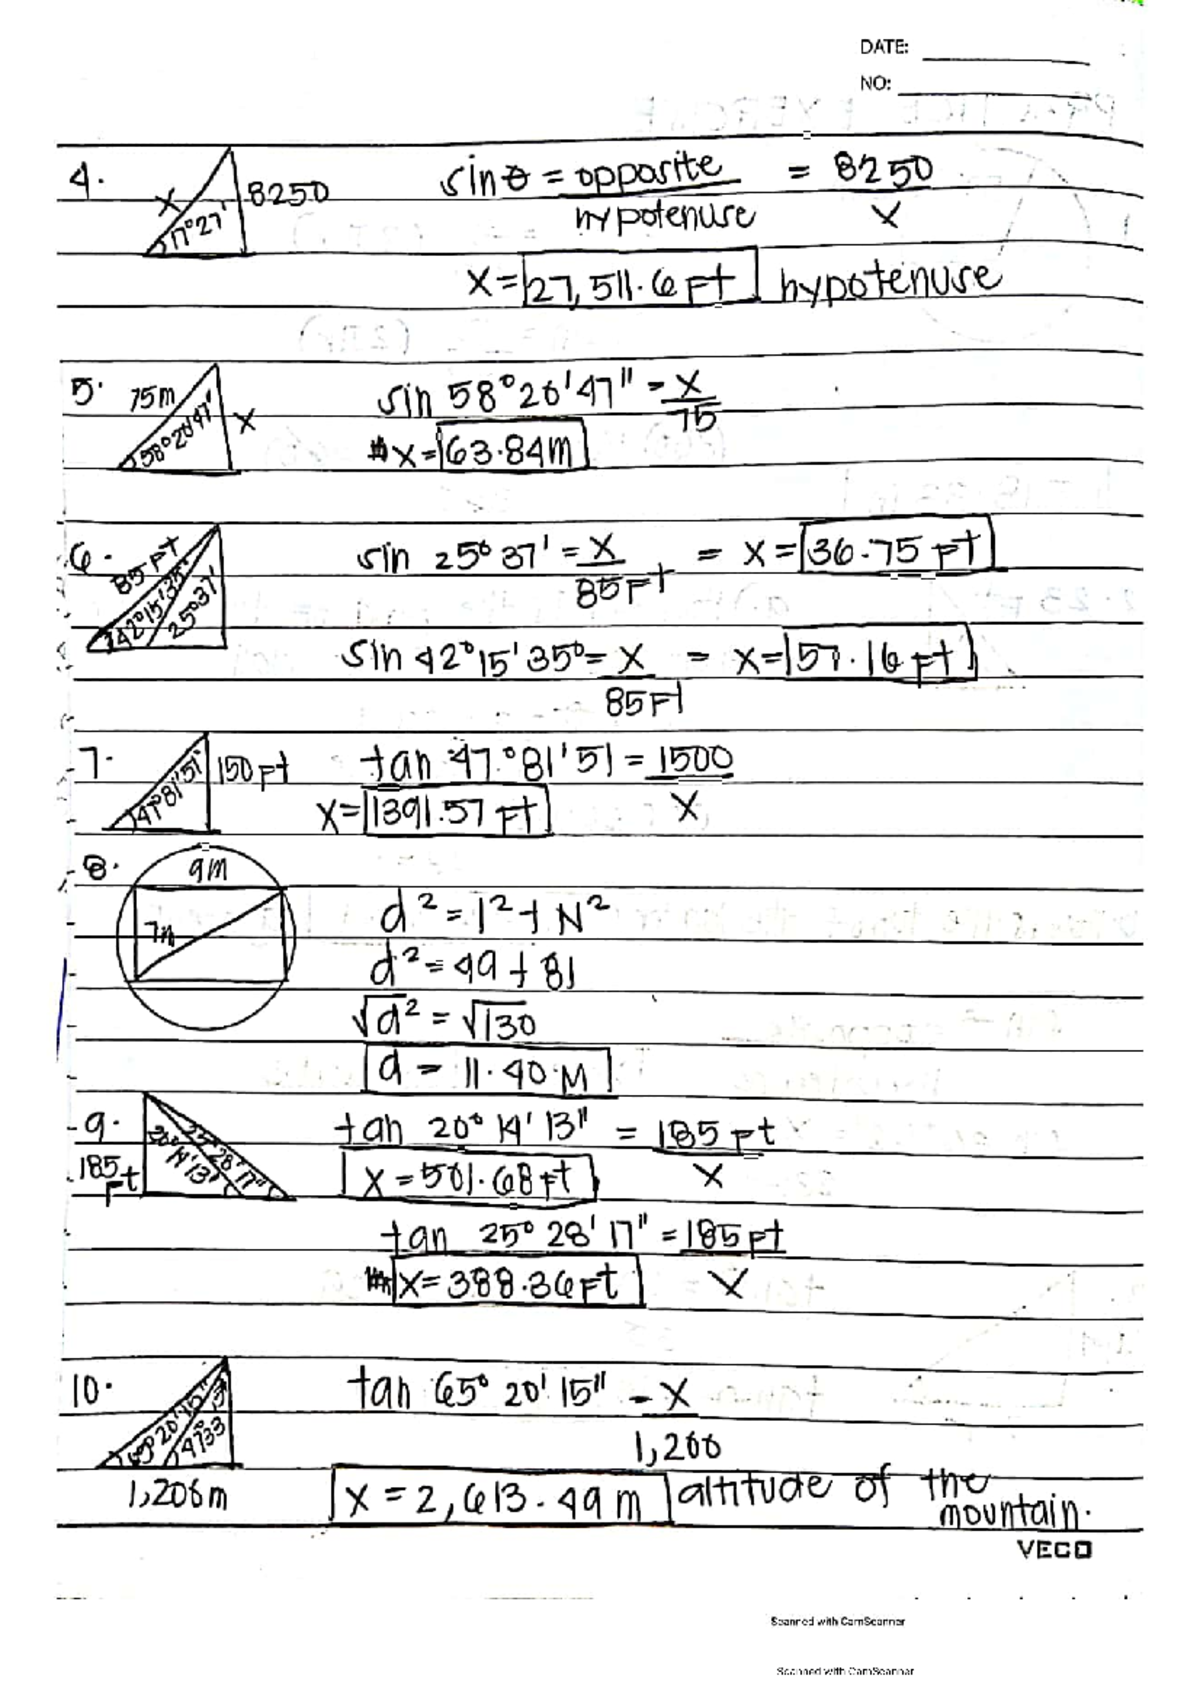 DATE:
NO:
4. X 8250 17°27' sinθ = opposite / hypotenuse = 8250 / X
X = 27,511.6 Ft hypotenuse
5. 75m 58°20'47' X sin 58°20'47" = X / 75
X = 63.84m
6. 85 Ft 42°15'35" 25°37' sin 25° 37' = X / 85 Ft = X = 36.75 Ft
sin 42°15'35° = X / 85 Ft = X = 57.16 Ft
7. 47°81'51' 150 Ft tan 47°81'51 = 1500 / X
X = 1391.57 Ft
8. 9m 7m
d² = l² + N²
d² = 49 + 81
√d² = √130
d = 11.40 M
9. 185 Ft 20°14'13" 25°28'17" tan 20° 14' 13" = 185 Ft / X
X = 501.68 Ft
tan 25° 28' 17" = 185 Ft / X
X = 388.36 Ft
10. 65°20'15" 47°33' 1,206m tan 65° 20' 15" = X / 1,200
X = 2,613.49 m altitude of the mountain.
VECO
Scanned with CamScanner
Scanned with CamScanner